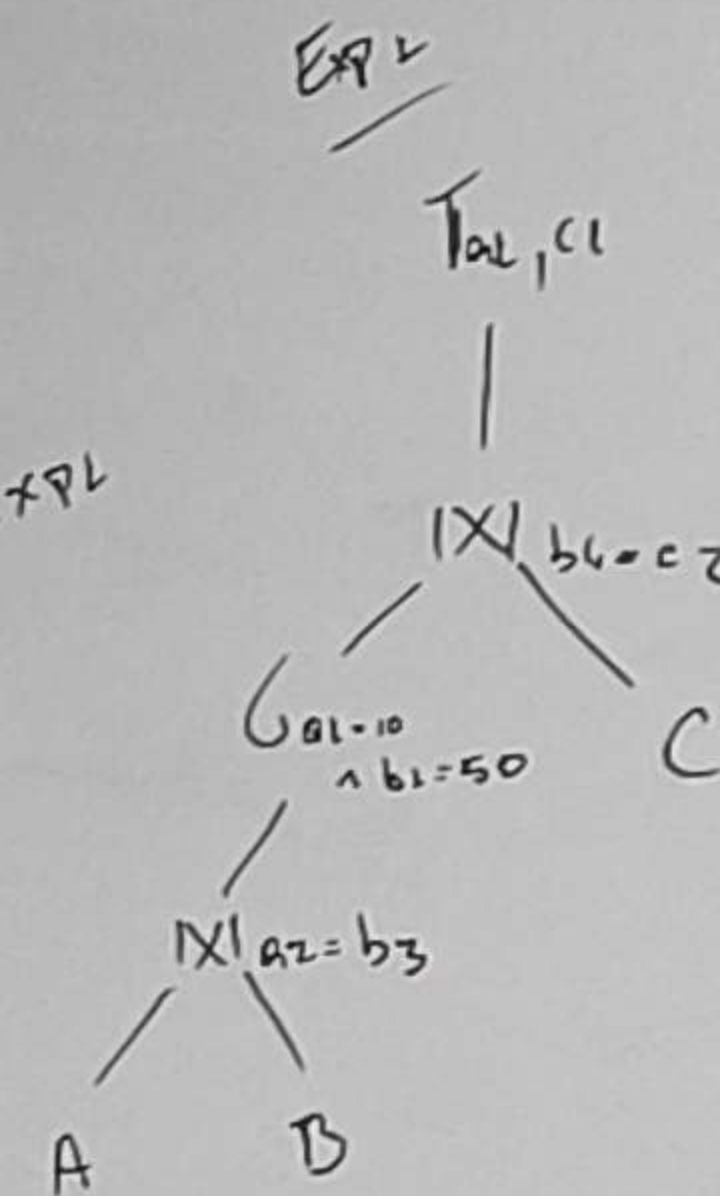 Exp 2
πa1, c1
xp1
|X| b4=c2
σa1=10
∧ b1=50
C
|X| a2=b3
A B